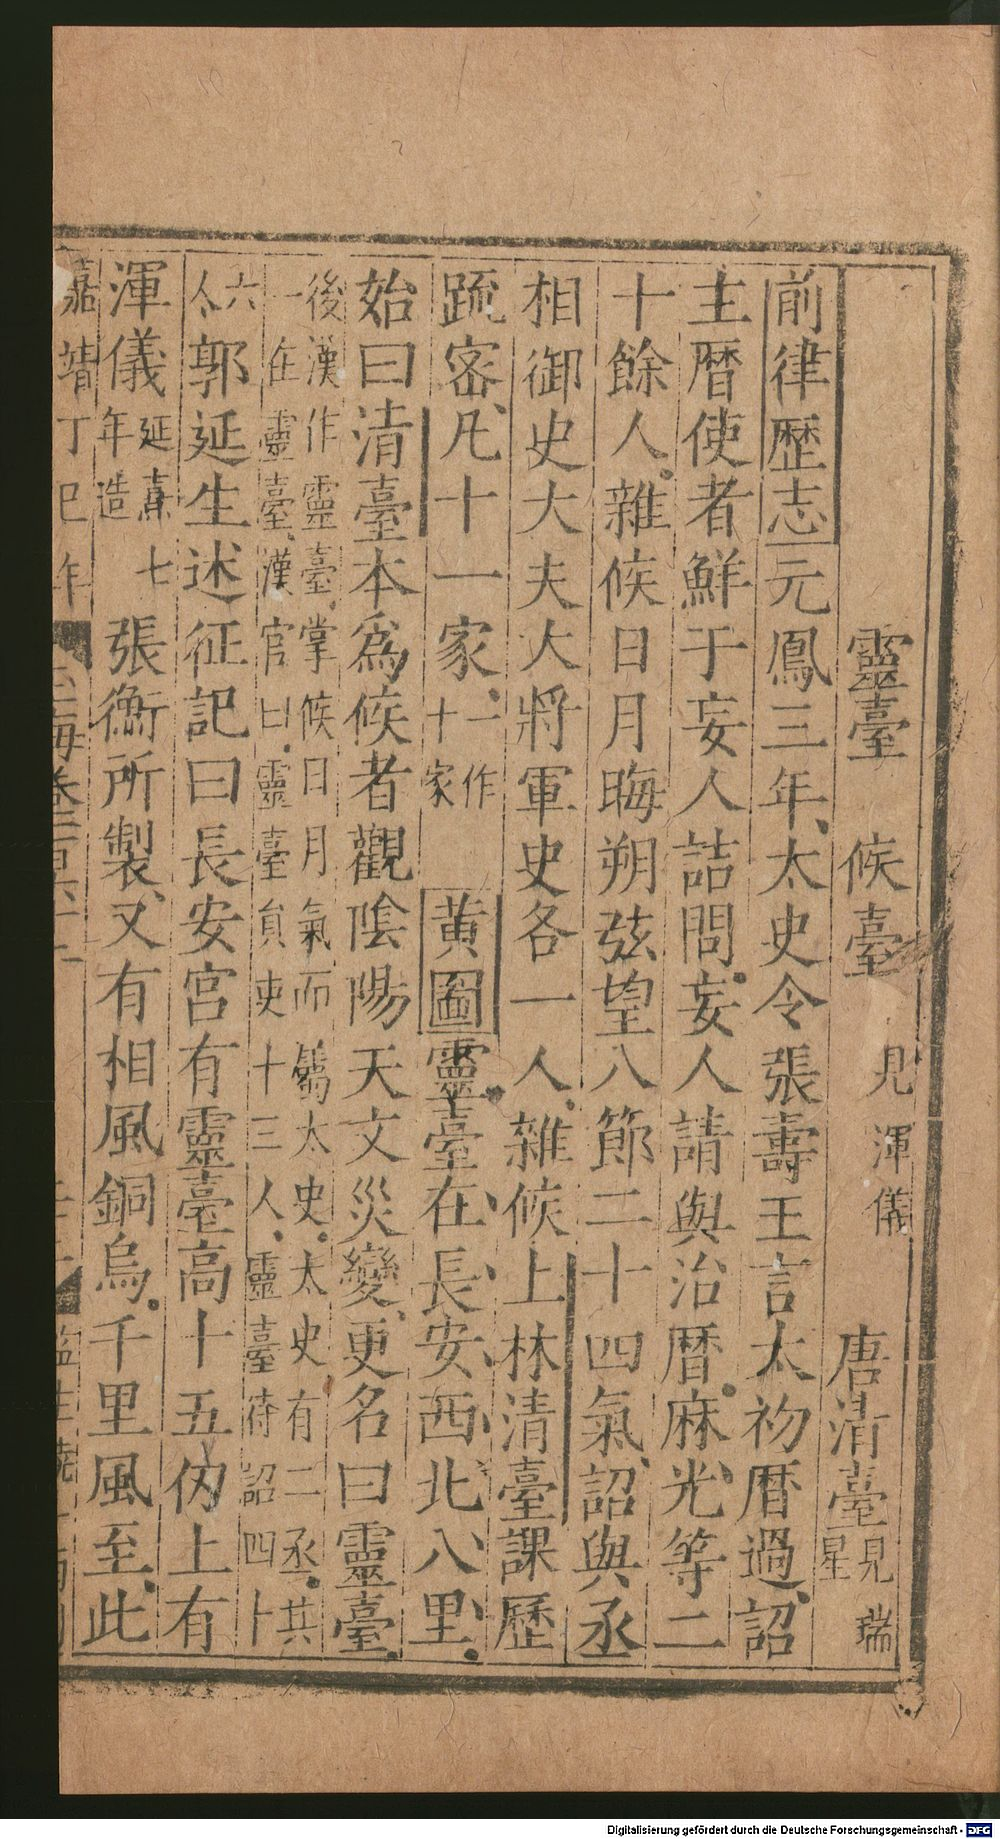 靈臺 候臺 見渾儀 唐清臺 見瑞星
前律歷志元鳳三年太史令張壽王言太初曆過詔
主曆使者鮮于妄人詰問妄人請與治曆麻光等二
十餘人雜候日月晦朔弦望八節二十四氣詔與丞
相御史大夫大將軍史各一人雜候上林清臺課歷
疏密凡十一家 一作十家 黃圖靈臺在長安西北八里
始曰清臺本爲候者觀陰陽天文災變更名曰靈臺
後漢作靈臺掌候日月氣而屬太史太史有二丞其
一在靈臺漢官曰靈臺員吏十三人靈臺待詔四十
六人郭延生述征記曰長安宮有靈臺高十五仭上有
渾儀 延熹七年造 張衡所製又有相風銅烏千里風至此
嘉靖丁巳年 玉海卷二百六十二
Digitalisierung gefördert durch die Deutsche Forschungsgemeinschaft - DFG